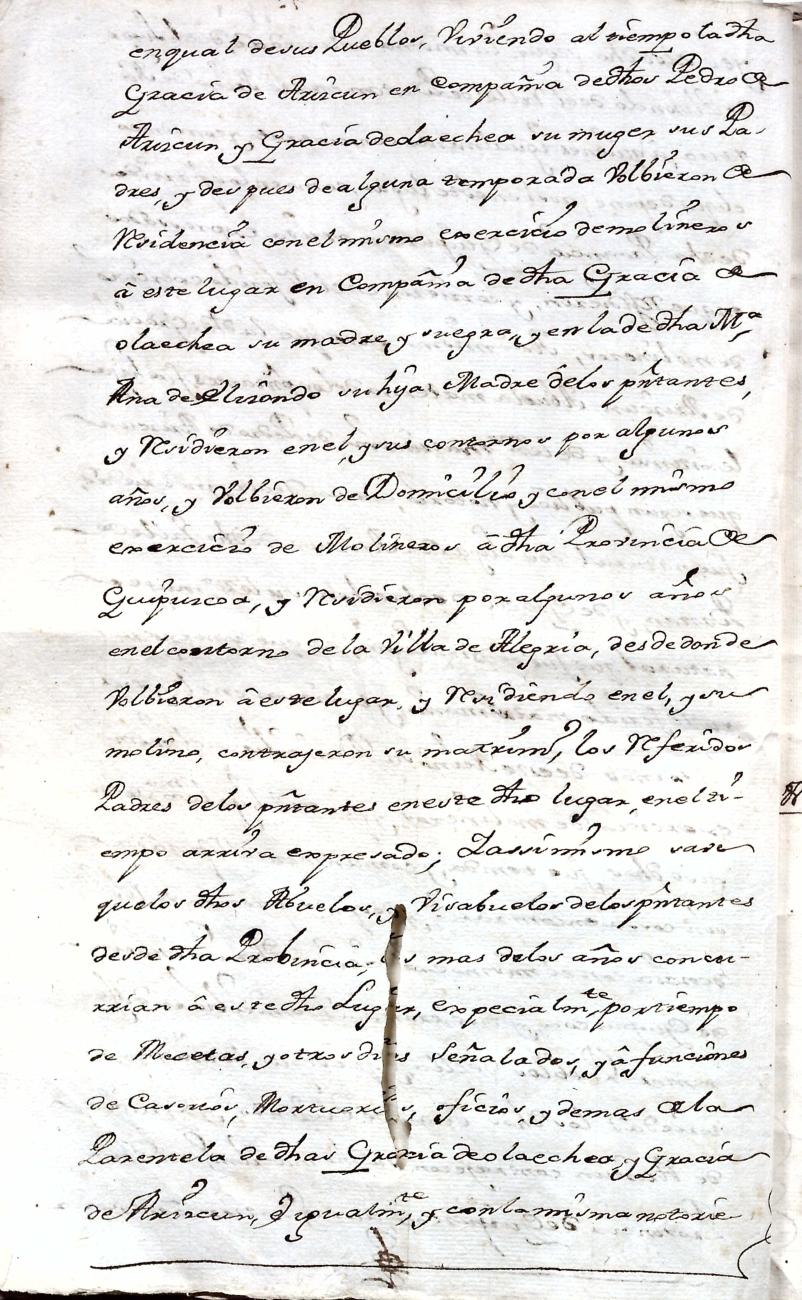 enqual desus Pueblos, Viviendo al tiempo la dha
Gracia de Arizcun en Compañia de dhos Pedro de
Arizcun y Gracia deolaechea su muger sus Pa-
dres, y despues de alguna temporada Volbieron de
Residencia con el mismo exercicio de molineros
â este lugar en Compañia de dha Gracia de
olaechea su madre, y suegra, y en la de dha Mª
Ana de Elizondo su hija Madre delos pñtantes,
y Residieron en el, y sus contornos por algunos
años, y Volbieron de Domicilio y con el mismo
exercicio de Molineros â dha Provincia de
Guipuzcoa, y Residieron por algunos años
en el contorno de la Villa de Alegria, desde donde
Volbieron â este lugar, y Residiendo en el, y su
molino, contrajeron su matrimº, los Referidos
Padres delos pñtantes en este dho lugar, en el ti-
empo arriva expresado; Iassimismo save
quelos dhos Abuelos, y Visabuelos delos pñtantes
desde dha Probincia, los mas delos años concu-
rrian â este dho Lugar, expecialmte, por tiempo
de Mecetas, y otros dias Señalados, y â funciones
de Casorios, Mortuorios, oficios, y demas de la
Parentela de dhas Gracia de olaechea, y Gracia
de Arizcun, È igualmte, y con la misma notorie